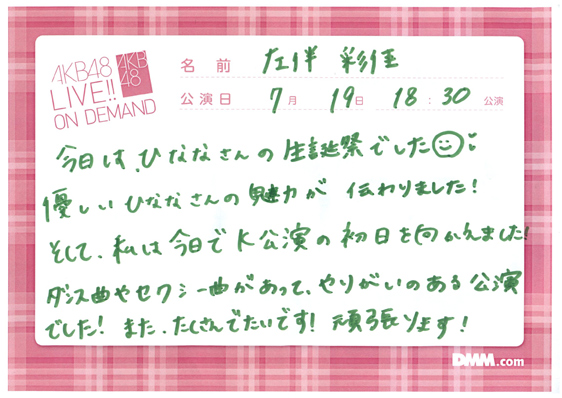 AKB48
LIVE!!
ON DEMAND
AKB
48
名前 左伴 彩佳
公演日 7月 19日 18:30 公演
今日は、ひななさんの生誕祭でした
優しいひななさんの魅力が 伝わりました!
そして、私は今日でK公演の初日を向かえました!
ダンス曲やセクシー曲があって、やりがいのある公演
でした! また、たくさんでたいです! 頑張ります!
DMM.com